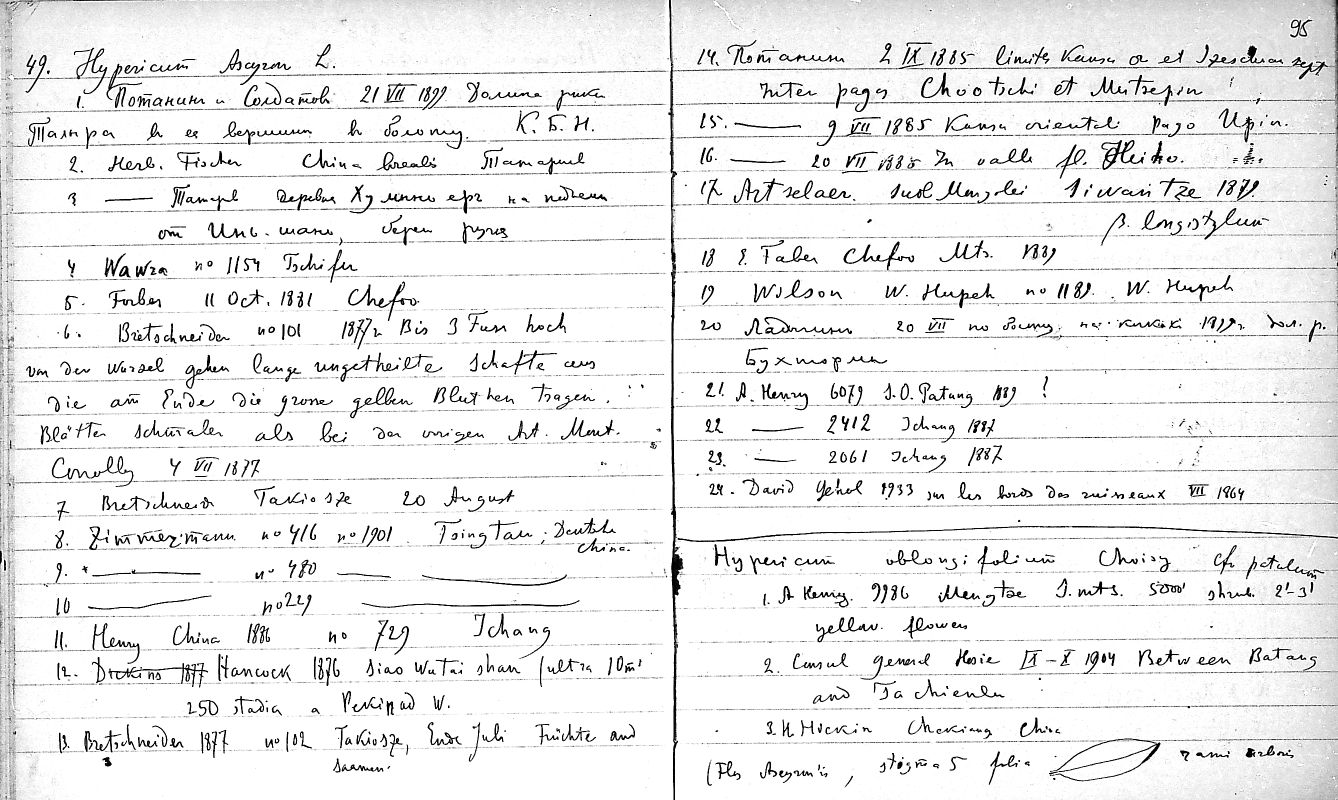 49. Hypericum Ascyron L.
1. Потанин и Солдатов 21 VII 1899 Долина реки
к ея вершине к болоту. К. Б. Н.
2. Herb. Fischer China borealis
3 — деревня на
от Инь-шаня, берег
4 Wawra no 1154 Tschifu
5. Forbes 11 Oct. 1881 Chefoo
6. Bretschneider no 101 1877 Bis 3 Fuss hoch
von der Wurzel gehen lange ungetheilte Schafte aus
die am Ende die grosse gelben Bluthen tragen.
Blätter schmaler als bei der vorigen Art. Mont.
Conolly 4 VII 1877
7 Bretschneider Takiosze 20 August
8. Zimmermann no 416 no 1901. Tsingtau; Deutsche
China.
9. — no 480 — —
10 — no 229 —
11. Henry China 1886 no 729 Ichang
12. Dickins 1877 Hancock 1876 Siao Wutai shan (ultra 10m'
250 stadia a Pekin ad W.
13. Bretschneider 1877 no 102 Takiosze, Ende Juli Früchte and
Saamen.
95
14. Потанин 2 IX 1885 limites Kansu or et Szeschuan sept
inter pagos Chootschi et
15. — 9 VII 1885 Kansu orientali pago Upin.
16. — 20 VII 1885 In valle fl. Heiho.
17 Artselaer. Mongolei Siwantze 1879.
β. longistylum
18 E. Faber Chefoo Mts. 1889
19 Wilson W. Hupeh no 1189. W. Hupeh
20 20 VII по 1899г. дол. р.
Бухтормы
21. A. Henry 6079 S.O. Patung 1889 !
22 — 2412 Ichang 1887
23. — 2061 Ichang 1887
24. David Gehol 1933 sur les bords des ruisseaux VII 1864
Hypericum oblongifolium Choisy Cfr patulum
1. A Henry. 9986 Mengtze S. mts. 5000' shrub 2'-3'
yellow flowers
2. Consul general Hosie IX-X 1904 Between Batang
and Tachienlu
3. H. Hickin Chekiang China
(Flos Ascyrum's, stigma 5 folia rami